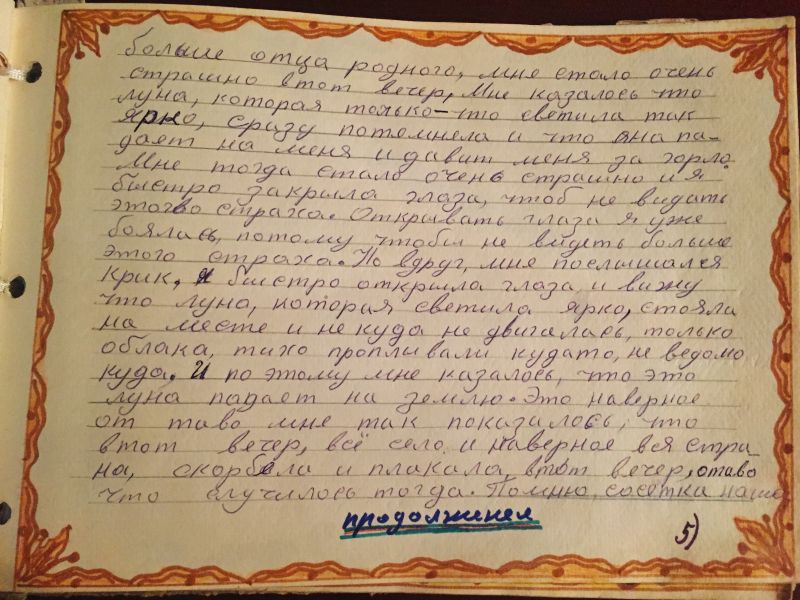 больше отца родного, мне стало очень
страшно втот вечер, Мне казалось что
луна, которая только-что светила так
ярко, сразу потемнела и что она па-
дает на меня и давит меня за горло.
Мне тогда стало очень страшно и я
быстро закрыла глаза, чтоб не видать
этогво страха. Открывать глаза я уже
боялась, потому чтобы не видеть больше
этого страха. Но вдруг, мне послышался
крик, я быстро открыла глаза, и вижу
что луна, которая светила ярко, стояла
на месте и не куда не двигалась, только
облака, тихо проплывали кудато, не ведомо
куда. И по этому мне казалось, что это
луна падает на землю. Это наверное
от таво мне так показалось, что
втот вечер, всё село и наверное вся стра-
на, скорбела и плакала, втот вечер, отаво
что случилось тогда. Помню, соседка наша
продолжения
5)